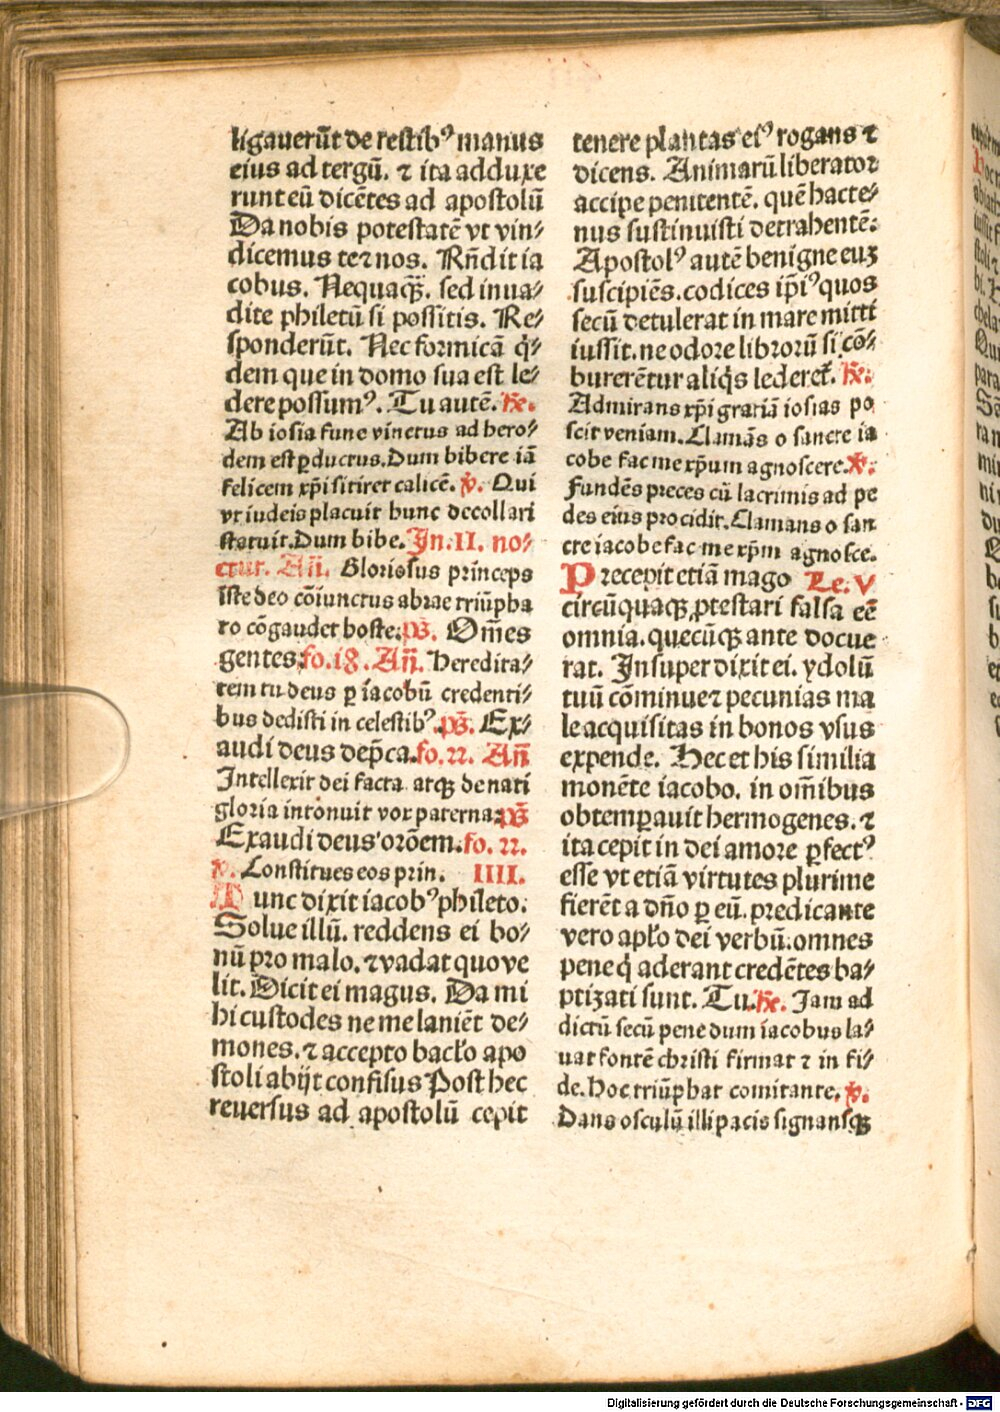 ligauerūt de restibꝰ manus
eius ad tergū. ⁊ ita adduxe
runt eū dicētes ad apostolū
Da nobis potestatē vt vin⸗
dicemus te ⁊ nos. Rn̄dit ia
cobus. Nequaqꝫ. sed inua⸗
dite philetū si possitis. Re⸗
sponderūt. Nec formicā q̇⸗
dem que in domo sua est le⸗
dere possumꝰ. Tu autē. R̄.
Ab iosia fune vinctus ad hero⸗
dem est ꝑductus. Dum bibere iā
felicem xp̄i sitiret calicē. ℣. Qui
vt iudeis placuit hunc decollari
statuit. Dum bibe. In. II. no⸗
ctur. An̄. Gloriosus princeps
iste deo cōiunctus abrae triūpha
ro cōgaudet hoste. ps̄. Om̄es
gentes. fo. 18. An̄. Heredita⸗
tem tu deus ꝑ iacobū credenti⸗
bus dedisti in celestibꝰ. ps̄. Ex⸗
audi deus dep̄ca. fo. 22. An̄
Intellexit dei facta atqꝫ de nati
gloria intonuit vox paterna: ps̄
Exaudi deus orōem. fo. 22.
℣. Constitues eos prin. IIII.
Tunc dixit iacobꝰ phileto.
Solue illū. reddens ei bo⸗
nū pro malo. ⁊ vadat quo ve
lit. Dicit ei magus. Da mi
hi custodes ne me laniēt de⸗
mones. ⁊ accepto baclo apo
stoli abijt confisus Post hec
reuersus ad apostolū cepit
tenere plantas eiꝰ rogans ⁊
dicens. Animarū liberator
accipe penitentē. quē hacte⸗
nus sustinuisti detrahentē.
Apostolꝰ autē benigne euꝫ
suscipiēs. codices ip̄iꝰ quos
secū detulerat in mare mitti
iussit. ne odore librorū si cō⸗
burerētur aliq̇s lederet. R̄.
Admirans xp̄i gratiā iosias po
scit veniam. Clamās o sancte ia
cobe fac me xp̄um agnoscere. ℣.
Fundēs preces cū lacrimis ad pe
des eius procidit. Clamans o san
cte iacobe fac me xp̄m agnosce.
Precepit etiā mago Le. V
circūquaqꝫ ꝓtestari falsa eē
omnia. quecūqꝫ ante docue
rat. Insuper dixit ei. ydolū
tuū cōminue ⁊ pecunias ma
le acquisitas in bonos vsus
expende. Hec et his similia
monēte iacobo. in om̄ibus
obtemꝑauit hermogenes. ⁊
ita cepit in dei amore ꝑfectꝰ
esse vt etiā virtutes plurime
fierēt a dn̄o ꝑ eū. predicante
vero aplo dei verbū. omnes
pene q̇ aderant credētes ba⸗
ptizati sunt. Tu. R̄. Iam ad
dictū secū pene dum iacobus la⸗
uat fontē christi firmat ⁊ in fi⸗
de. Hoc triūphat comitante. ℣.
Dans osculū illi pacis signansqꝫ
Digitalisierung gefördert durch die Deutsche Forschungsgemeinschaft - DFG